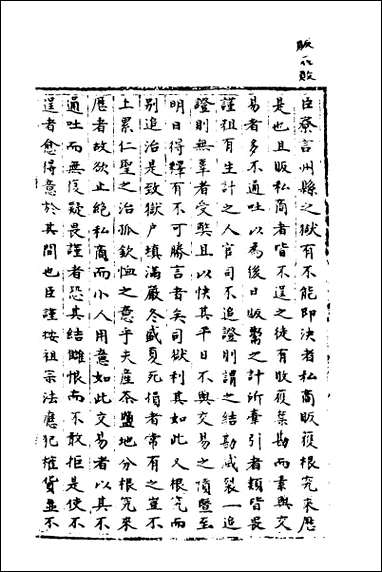 臣寮言州縣之獄有不能即決者私商販獲根究來歷
是也且販私商者皆不逞之徒有敗獲禁勘而素與交
易者多不通吐以為後日販鬻之計所牽引者類皆畏
謹粗有生計之人官司不追證則謂之結勘咸裂一追
證則無辜者受獘且以快其平日不與交易之憤暨至
明日得釋有不可勝言者矣司獄利其如此又根究而
別追治是致獄戶填滿嚴冬盛夏死損者常有之豈不
上累仁聖之治孤欽恤之意乎夫產茶鹽地分根究來
歷者故欲止絕私商而小人用意如此交易者以其不
通吐而無復疑畏謹者恐其結讎恨而不敢拒是使不
逞者愈得意於其間也臣謹按祖宗法應犯榷貨並不
販一作敗